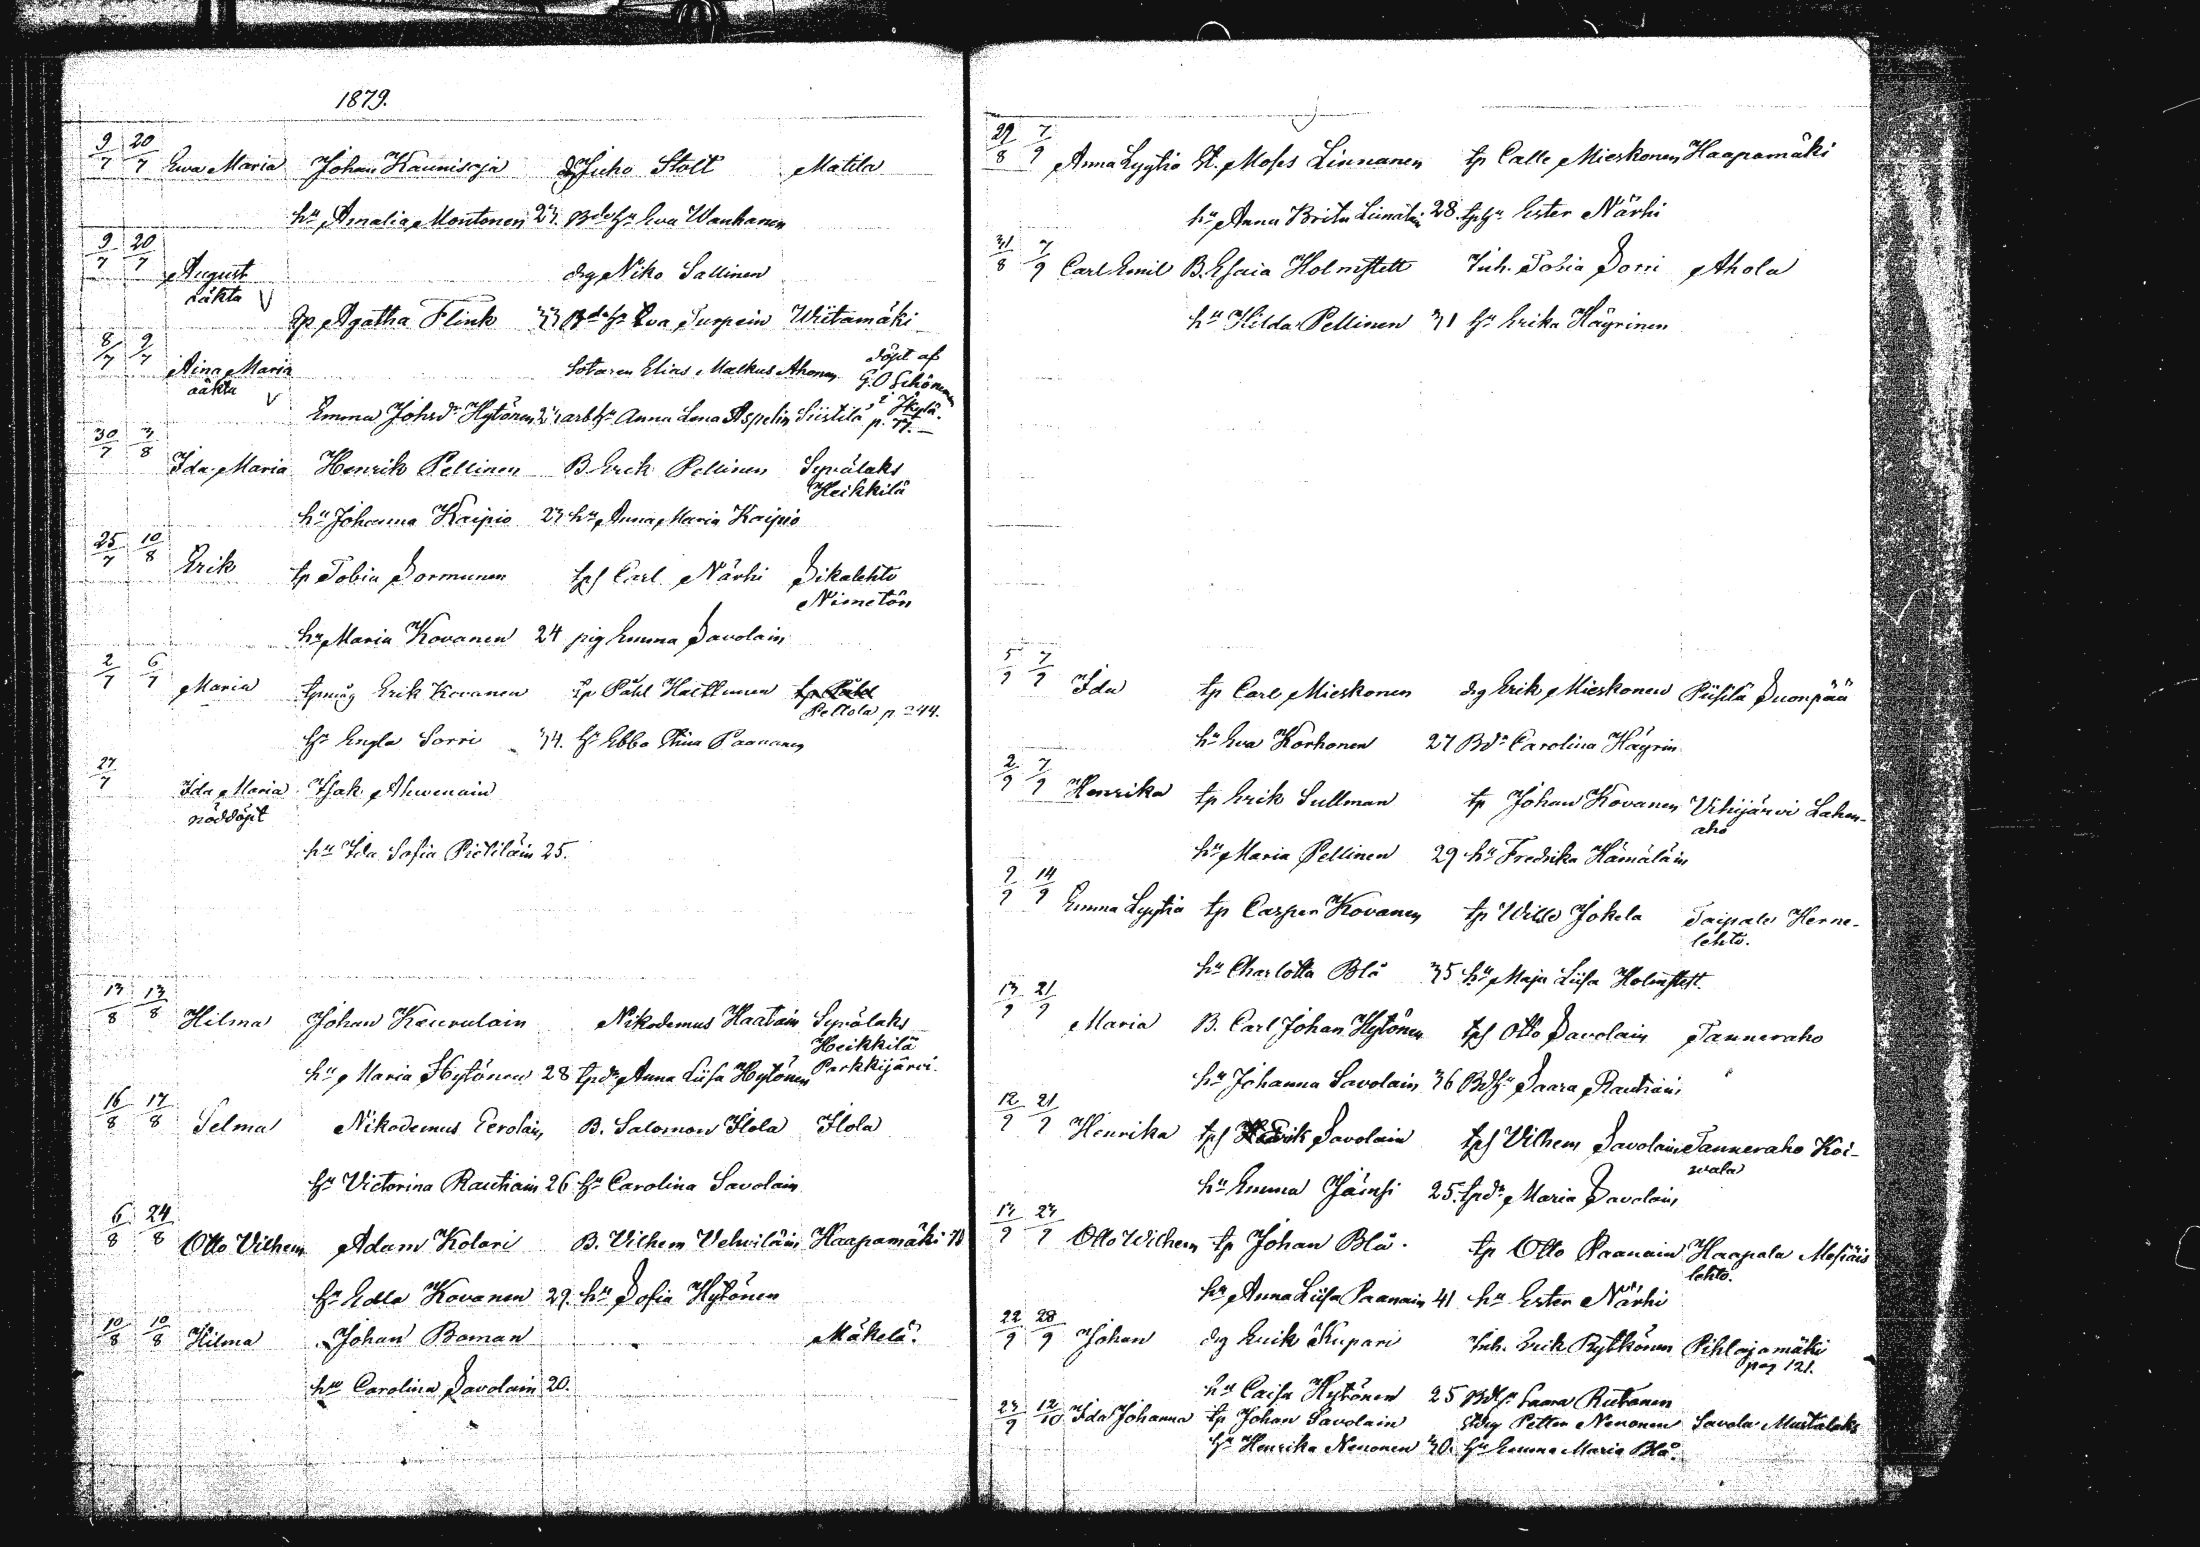 1879.
9/7 20/7 Ewa Maria Johan Kaunisoja Juho Stolt Matila
hu Amalia Montonen 23. Bde hu Eva Wankanen
9/7 20/7 August oäkta V drg Niko Sallinen
tp Agatha Flink 33 Bde hu Eva Turpein Wiitamäki
8/7 9/7 Aina Maria oäkta V Sotaren Elias Malkus Ahonen döpt af G.O Schöneman
Emma Johsdr Hytönen arb hu Anna Lena Aspelin Siistilä p. 77.
30/7 3/8 Ida Maria Henrik Pellinen B. Erik Pellinen Syvälaks Heikkilä
hu Johanna Kaipio 23 hu Anna Maria Kaipio
25/7 10/8 Erik tp Tobias Sormunen tps Carl Närhi Sikalehto Nimetön
hu Maria Kovanen 24 pig Emma Savolain
2/7 6/7 Maria tpmåg Erik Kovanen tp Påhl Hakkunen tp Påhl
Peltola p 244.
hu Engla Sorri 34. hu Ebba Stina Paananen
27/7 Ida Maria Isak Ahvenain
nöddöpt
hu Ida Sofia Pietiläin 25.
13/8 13/8 Hilma Johan Kauvulain Nikodemus Haatain Syvälaks
Heikkilä
hu Maria Hytönen 28 tpdr Anna Liisa Hytönen Parkkijärvi.
16/8 17/8 Selma Nikodemus Eerolain B. Salomon Ilola Ilola
hu Victorina Rautiain 26 hu Carolina Savolain
6/8 24/8 Otto Vilhem Adam Kolari B. Vilhem Vehviläin Haapamäki
hu Edla Kovanen 29. hu Sofia Hytönen
10/8 10/8 Hilma Johan Boman Mäkelä.
hu Carolina Savolain 20.
29/8 7/9 Anna Lyytia It. Moses Linnanen tp Calle Mieskonen Haapamäki
hu Anna Brita Liimatain 28. tp hu Ester Närhi
31/8 7/9 Carl Emil B. Esaia Holmstett Inh. Tobia Sorri Ahola
hu Hilda Pellinen 31 hu Erika Häyrinen
5/9 7/9 Ida tp Carl Mieskonen drg Erik Mieskonen Piisilä Suonpää
hu Eva Korhonen 27 Bdr Carolina Häyrin
2/9 7/9 Henrika tp Erik Sullman tp Johan Kovanen Vihijärvi Lahen-
aho
hu Maria Pellinen 29 hu Fredrika Hämäläin
9/9 14/9 Emma Lyytia tp Casper Kovanen tp Wille Jokela Taipale Herne-
lehto.
hu Charlotta Blå 35 hu Maja Liisa Holmstett.
13/9 21/9 Maria B. Carl Johan Hytönen tps Otto Savolain Tanneraho
hu Johanna Savolain 36 Bd hu Saara Rautiain
12/9 21/9 Henrika tps Hedrik Savolain tps Vilhem Savolain Tanneraho Koi-
vala
hu Emma Jämsi 25. tpdr Maria Savolain
13/9 23/9 Otto Wilhem tp Johan Blå. tp Otto Paanain Haapala Mesiäis
lehto.
hu Anna Liisa Paanain 41 hu Ester Närhi
22/9 28/9 Johan drg Erik Kupari Inh. Erik Rytkönen Pihlajamäki
pag 121.
hu Caisa Hytönen 25 Bd hu Saara Rutanen
23/9 12/10 Ida Johanna tp Johan Savolain Petter Nenonen Savola Mustalaks
hu Henrika Nenonen 30. hu Emma Maria Blå.